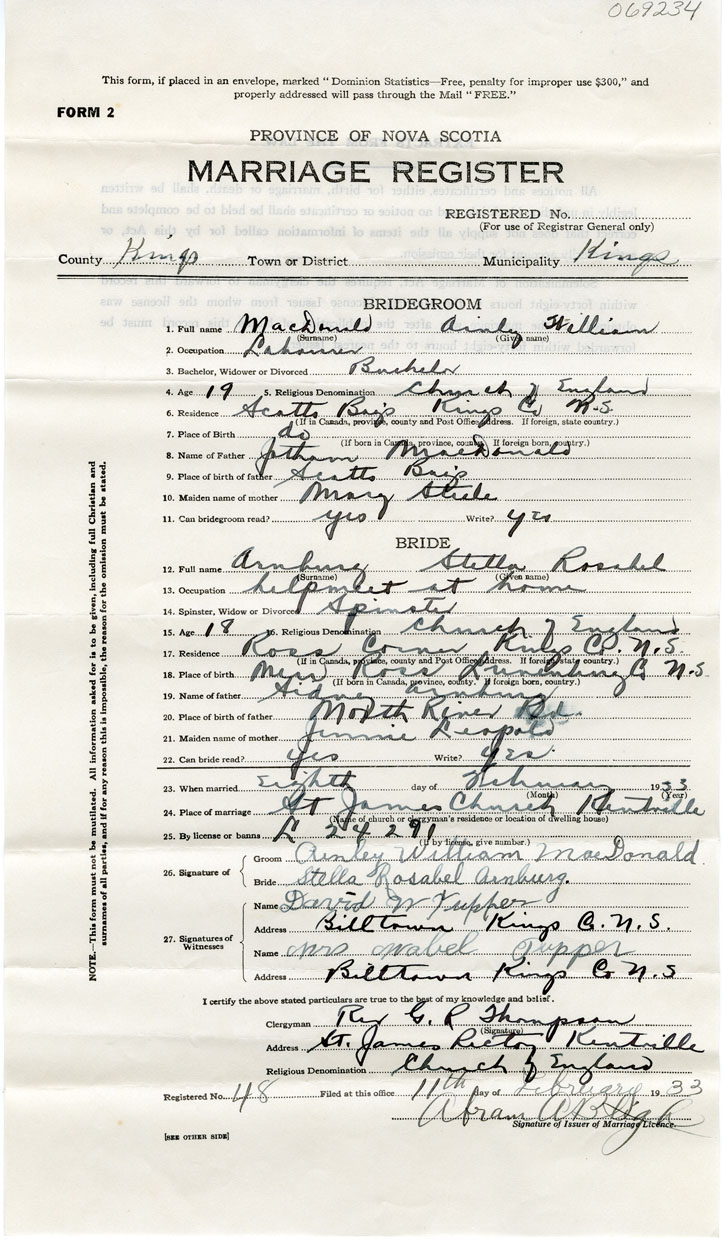 069234
This form, if placed in an envelope, marked "Dominion Statistics—Free, penalty for improper use $300," and
properly addressed will pass through the Mail "FREE."
FORM 2
PROVINCE OF NOVA SCOTIA
MARRIAGE REGISTER
REGISTERED No.
(For use of Registrar General only)
County Kings Town or District Municipality Kings
BRIDEGROOM
1. Full name MacDonald Ainley William
(Surname) (Given name)
2. Occupation Labourer
3. Bachelor, Widower or Divorced Bachelor
4. Age 19 5. Religious Denomination Church of England
6. Residence Scotts Bay Kings Co N.S.
(If in Canada, province, county and Post Office address. If foreign, state country.)
7. Place of Birth do
(If born in Canada, province, county. If foreign born, country.)
8. Name of Father Jotham MacDonald
9. Place of birth of father Scotts Bay
10. Maiden name of mother Mary Steele
11. Can bridegroom read? yes Write? yes
BRIDE
12. Full name Arnburg Stella Rosabel
(Surname) (Given name)
13. Occupation helpmeet at home
14. Spinster, Widow or Divorced Spinster
15. Age 18 16. Religious Denomination Church of England
17. Residence Ross Corner Kings Co. N.S.
(If in Canada, province, county and Post Office address. If foreign state country.)
18. Place of birth New Ross Lunenburg Co N.S.
(If born in Canada, province, county. If foreign born, country.)
19. Name of father Sidney Arnburg
20. Place of birth of father North River
21. Maiden name of mother Jennie Leopold
22. Can bride read? yes Write? yes.
23. When married Eighth day of February 1933
(Month) (Year)
24. Place of marriage St James Church Kentville
(Name of church or clergyman's residence or location of dwelling house)
25. By license or banns L 24291
(If by license, give number.)
26. Signature of Groom Ainley William MacDonald.
Bride Stella Rosabel Arnburg.
27. Signatures of Witnesses Name David W Tupper
Address Billtown Kings Co. N.S.
Name Mrs Mabel Tupper
Address Billtown Kings Co N.S
I certify the above stated particulars are true to the best of my knowledge and belief.
Clergyman Rev G. R Thompson
(Signature)
Address St. James Rectory Kentville
Religious Denomination Church of England
Registered No. 48 Filed at this office 11th day of February 1933
Abram
Signature of Issuer of Marriage Licence.
[SEE OTHER SIDE]
NOTE.—This form must not be mutilated. All information asked for is to be given, including full Christian and
surnames of all parties, and if for any reason this is impossible, the reason for the omission must be stated.